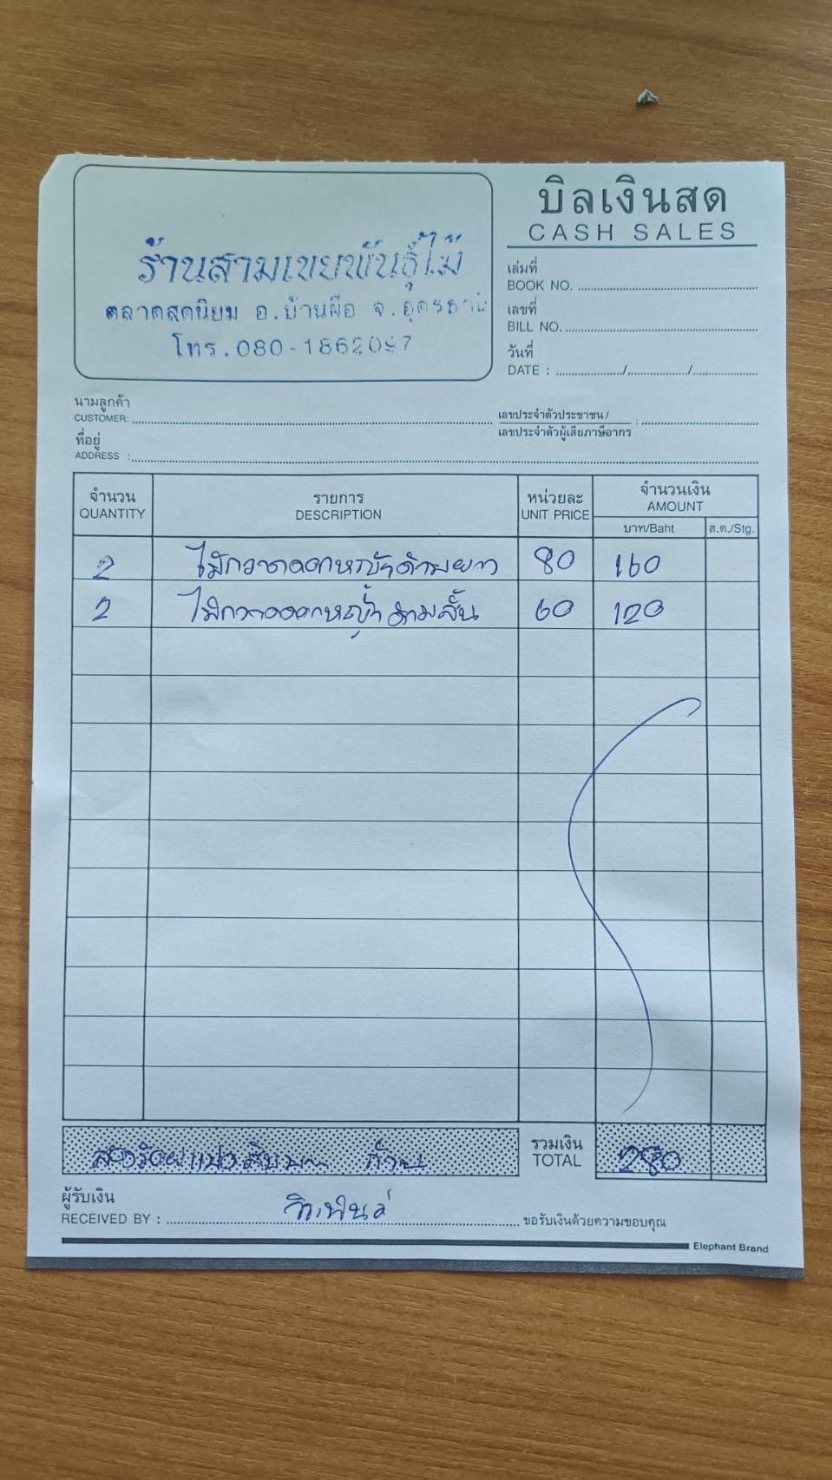 บิลเงินสด
CASH SALES
ร้านสามเขยพันธุ์ไม้
ตลาดสดนิยม อ.บ้านผือ จ.อุดรธานี
โทร.080-1862097
เล่มที่
BOOK NO.
เลขที่
BILL NO.
วันที่
DATE : / /
นามลูกค้า
CUSTOMER:
เลขประจำตัวประชาชน / :
เลขประจำตัวผู้เสียภาษีอากร
ที่อยู่
ADDRESS :
จำนวน รายการ หน่วยละ จำนวนเงิน
QUANTITY DESCRIPTION UNIT PRICE AMOUNT
บาท/Baht ส.ต./Stg.
2 ไม้กวาดดอกหญ้าด้ามยาว 80 160
2 ไม้กวาดดอกหญ้าด้ามสั้น 60 120
สองร้อยแปดสิบบาท ถ้วน
รวมเงิน
TOTAL 280
ผู้รับเงิน
RECEIVED BY : ขอรับเงินด้วยความขอบคุณ
Elephant Brand